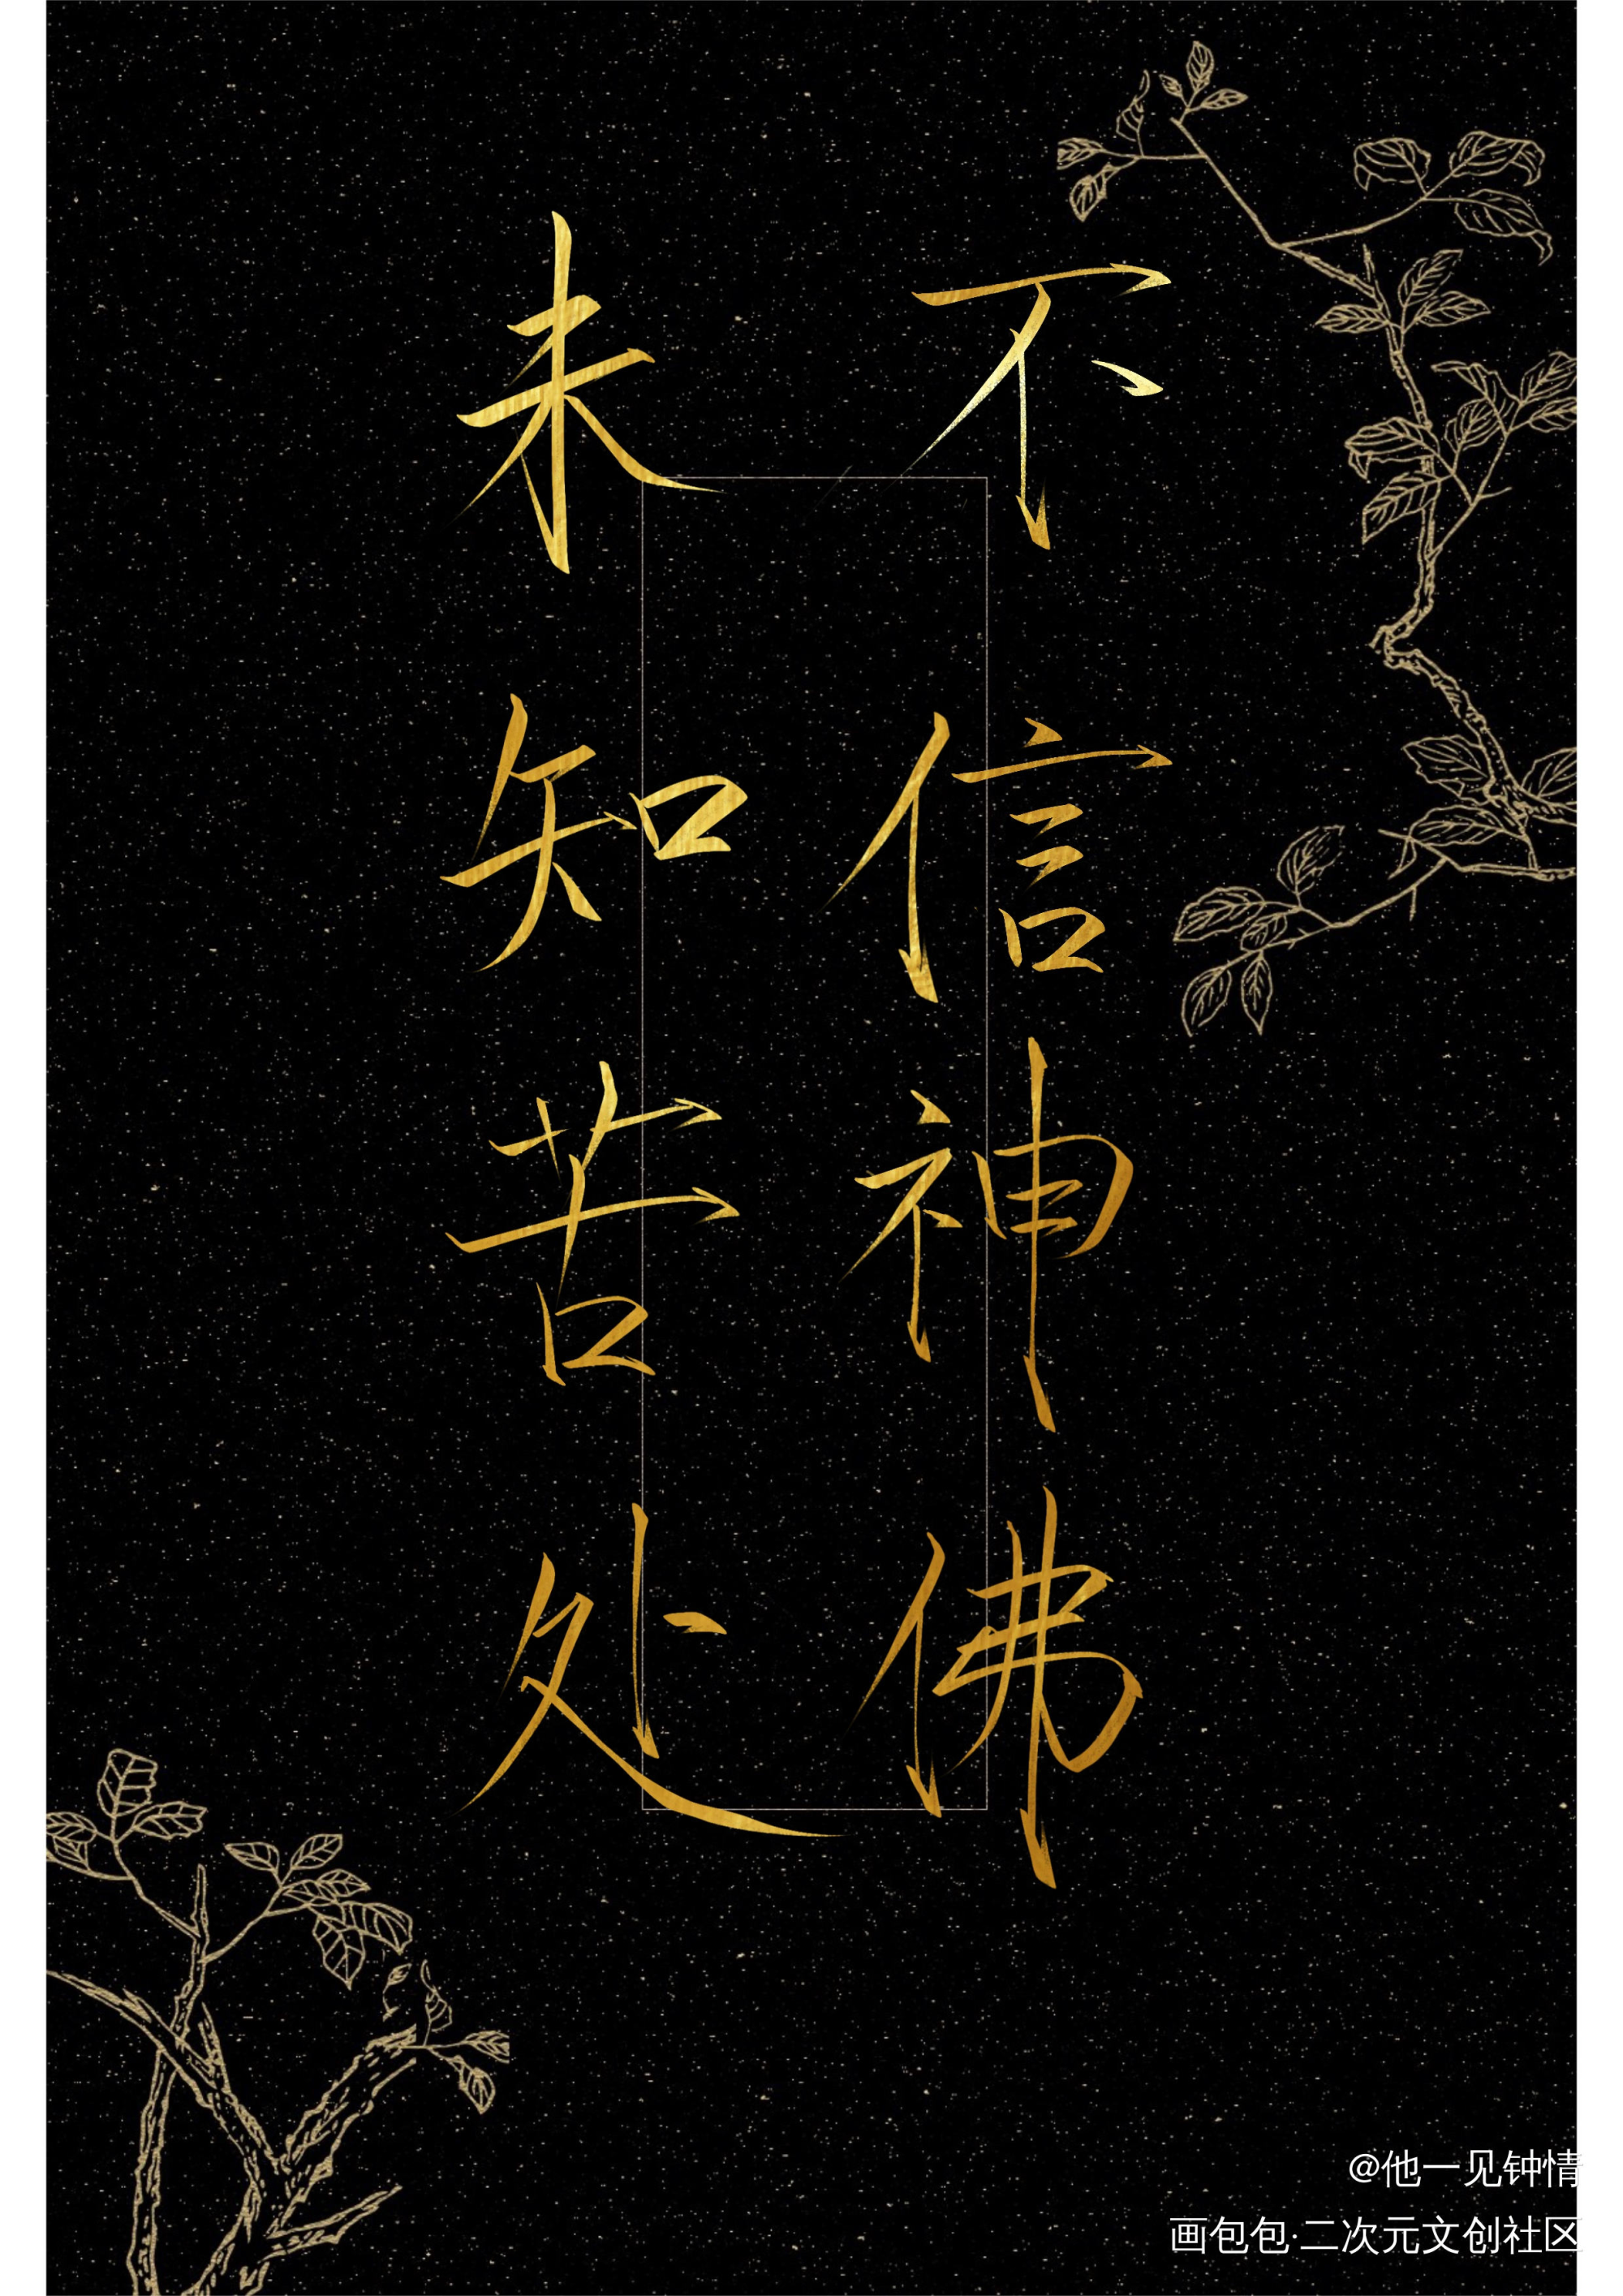 不信神佛
未知苦处
@他一见钟情
画包包·二次元文创社区